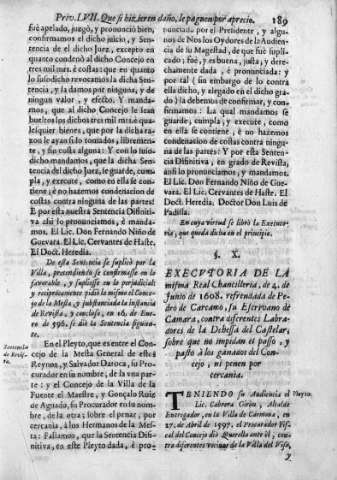 Priv. LVII. Que si hizieren daño, le paguen por aprecio. 189
fue apelado, juzgò, y pronunciò bien,
confirmamos el dicho juicio, y Sen-
tencia de el dicho Juez, excepto en
quanto condenò al dicho Concejo en
tres mil mrs. è costas: que en quanto
lo susodicho revocamos la dicha Sen-
tencia, y la damos por ninguna, y de
ningun valor, y efecto. Y manda-
mos, que al dicho Concejo le sean
bueltos los dichos tres mil mrs. è qua-
lesquier bienes, que por la dicha ra-
zon le ayan sido tomados, libremen-
te, y sin costa alguna: Y con lo suso
dicho mandamos, que la dicha Sen-
tencia del dicho Juez, le guarde, cum-
pla, y execute, como en ella se con-
tiene, è no hazemos condenacion de
costas contra ninguna de las partes!
E por esta nuestra Sentencia Difiniti-
va assi lo pronunciamos, è manda-
mos. El Lic. Don Fernando Niño de
Guevara. El Lic. Cervantes de Haste.
El Doct. Heredia.
De esta Sentencia se suplicò por la
Villa, pretendiendo se confirmasse en lo
favorable, y supliesse en lo perjudicial;
y reciprocamente pidiò lo mismo el Conce-
jo de la Mesta, y substanciada la instancia
de Revista, y conclusa, en 16. de Ene-
ro de 596. se diò la Sentencia siguien-
te.
Sentencia de Revista.
En el Pleyto, que es entre el Con-
cejo de la Mesta General de estos
Reynos, y Salvador Daroca, su Pro-
curador en su nombre, de la una par-
te: y el Concejo de la Villa de la
Fuente el Maestre, y Gonçalo Ruiz
de Aguado, su Procurador en su nom-
bre, de la otra; sobre el prear, por
cercania, à los Hermanos de la Mes-
ta: Fallamos, que la Sentencia Difi-
nitiva, en este Pleyto dada, è pro-
nunciada por el Presidente, y algu-
nos de Nos los Oydores de la Audien-
cia de su Magestad, de que fuè supli-
cado; fuè, y es buena, justa, y dere-
chamente dada, è pronunciada: y
por tal (sin embargo de lo contra
ella dicho, y alegado en el dicho gra-
do) la debemos de confirmar, y con-
firmamos: La qual mandamos se
guarde, cumpla, y execute, como
en ella se contiene, è no hazemos
condenacion de costas contra ningu-
na de las partes: Y por esta Senten-
cia Difinitiva, en grado de Revista,
assi lo pronunciamos, y mandamos.
El Lic. Don Fernando Niño de Gue-
vara. El Lic. Cervantes de Haste. El
Doct. Heredia. Doctor Don Luis de
Padilla.
En cuya virtud se librò la Executo-
ria, que queda dicha en el principio.
§. X.
EXECUTORIA DE LA
misma Real Chancilleria, de 4. de
Junio de 1608. refrendada de Pe-
dro de Carcamo, su Escrivano de
Camara, contra diferentes Labra-
dores de la Dehessa del Castelar,
sobre que no impidan el passo, y
pasto à los ganados del Con-
cejo, ni penen por
cercania.
TENIENDO su Audiencia el
Pleyto.
Lic. Cabrera Giron, Alcalde
Entregador, en la Villa de Carmona, en
27. de Abril de 1597. el Procurador Fis-
cal del Concejo diò Querella ante èl, con-
tra diferentes vecinos de la Villa del Viso,